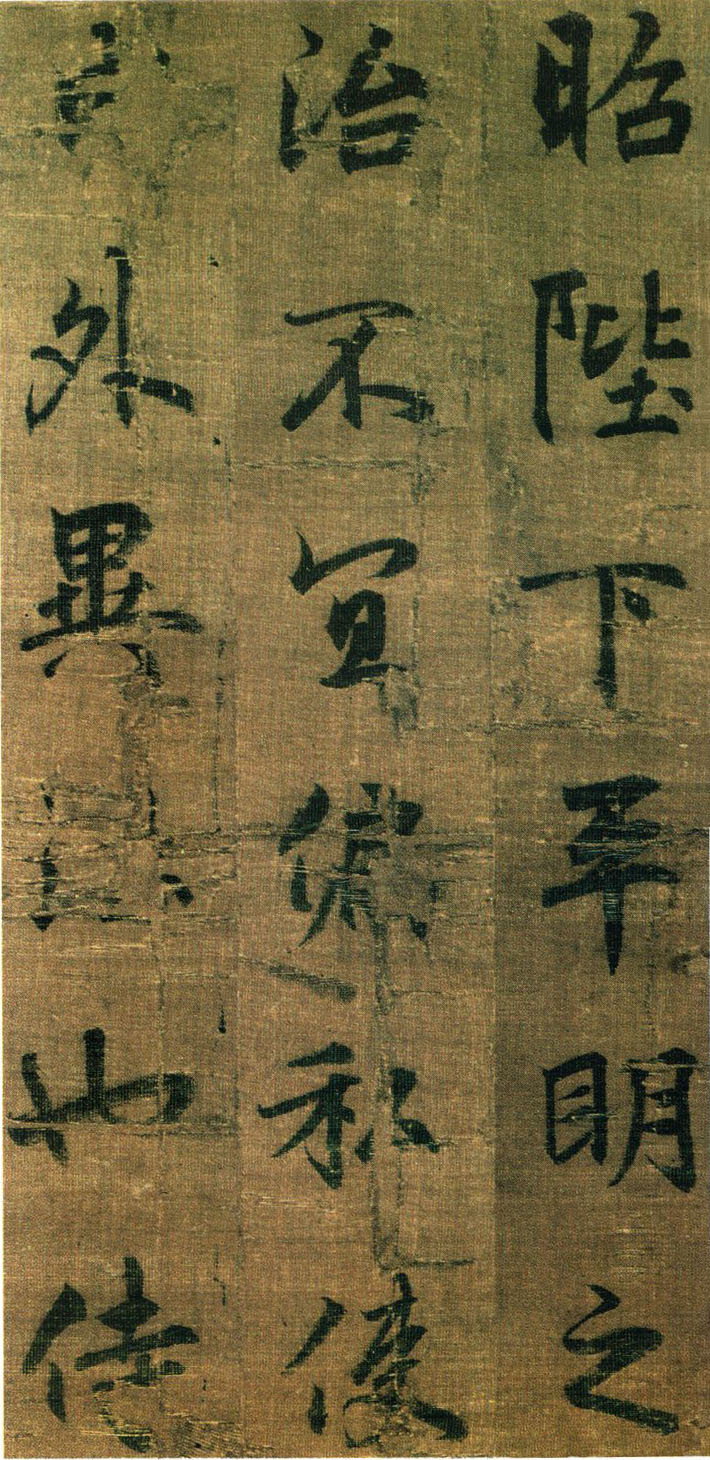 昭陛下平明之
治不宜偏私使
外異法也侍